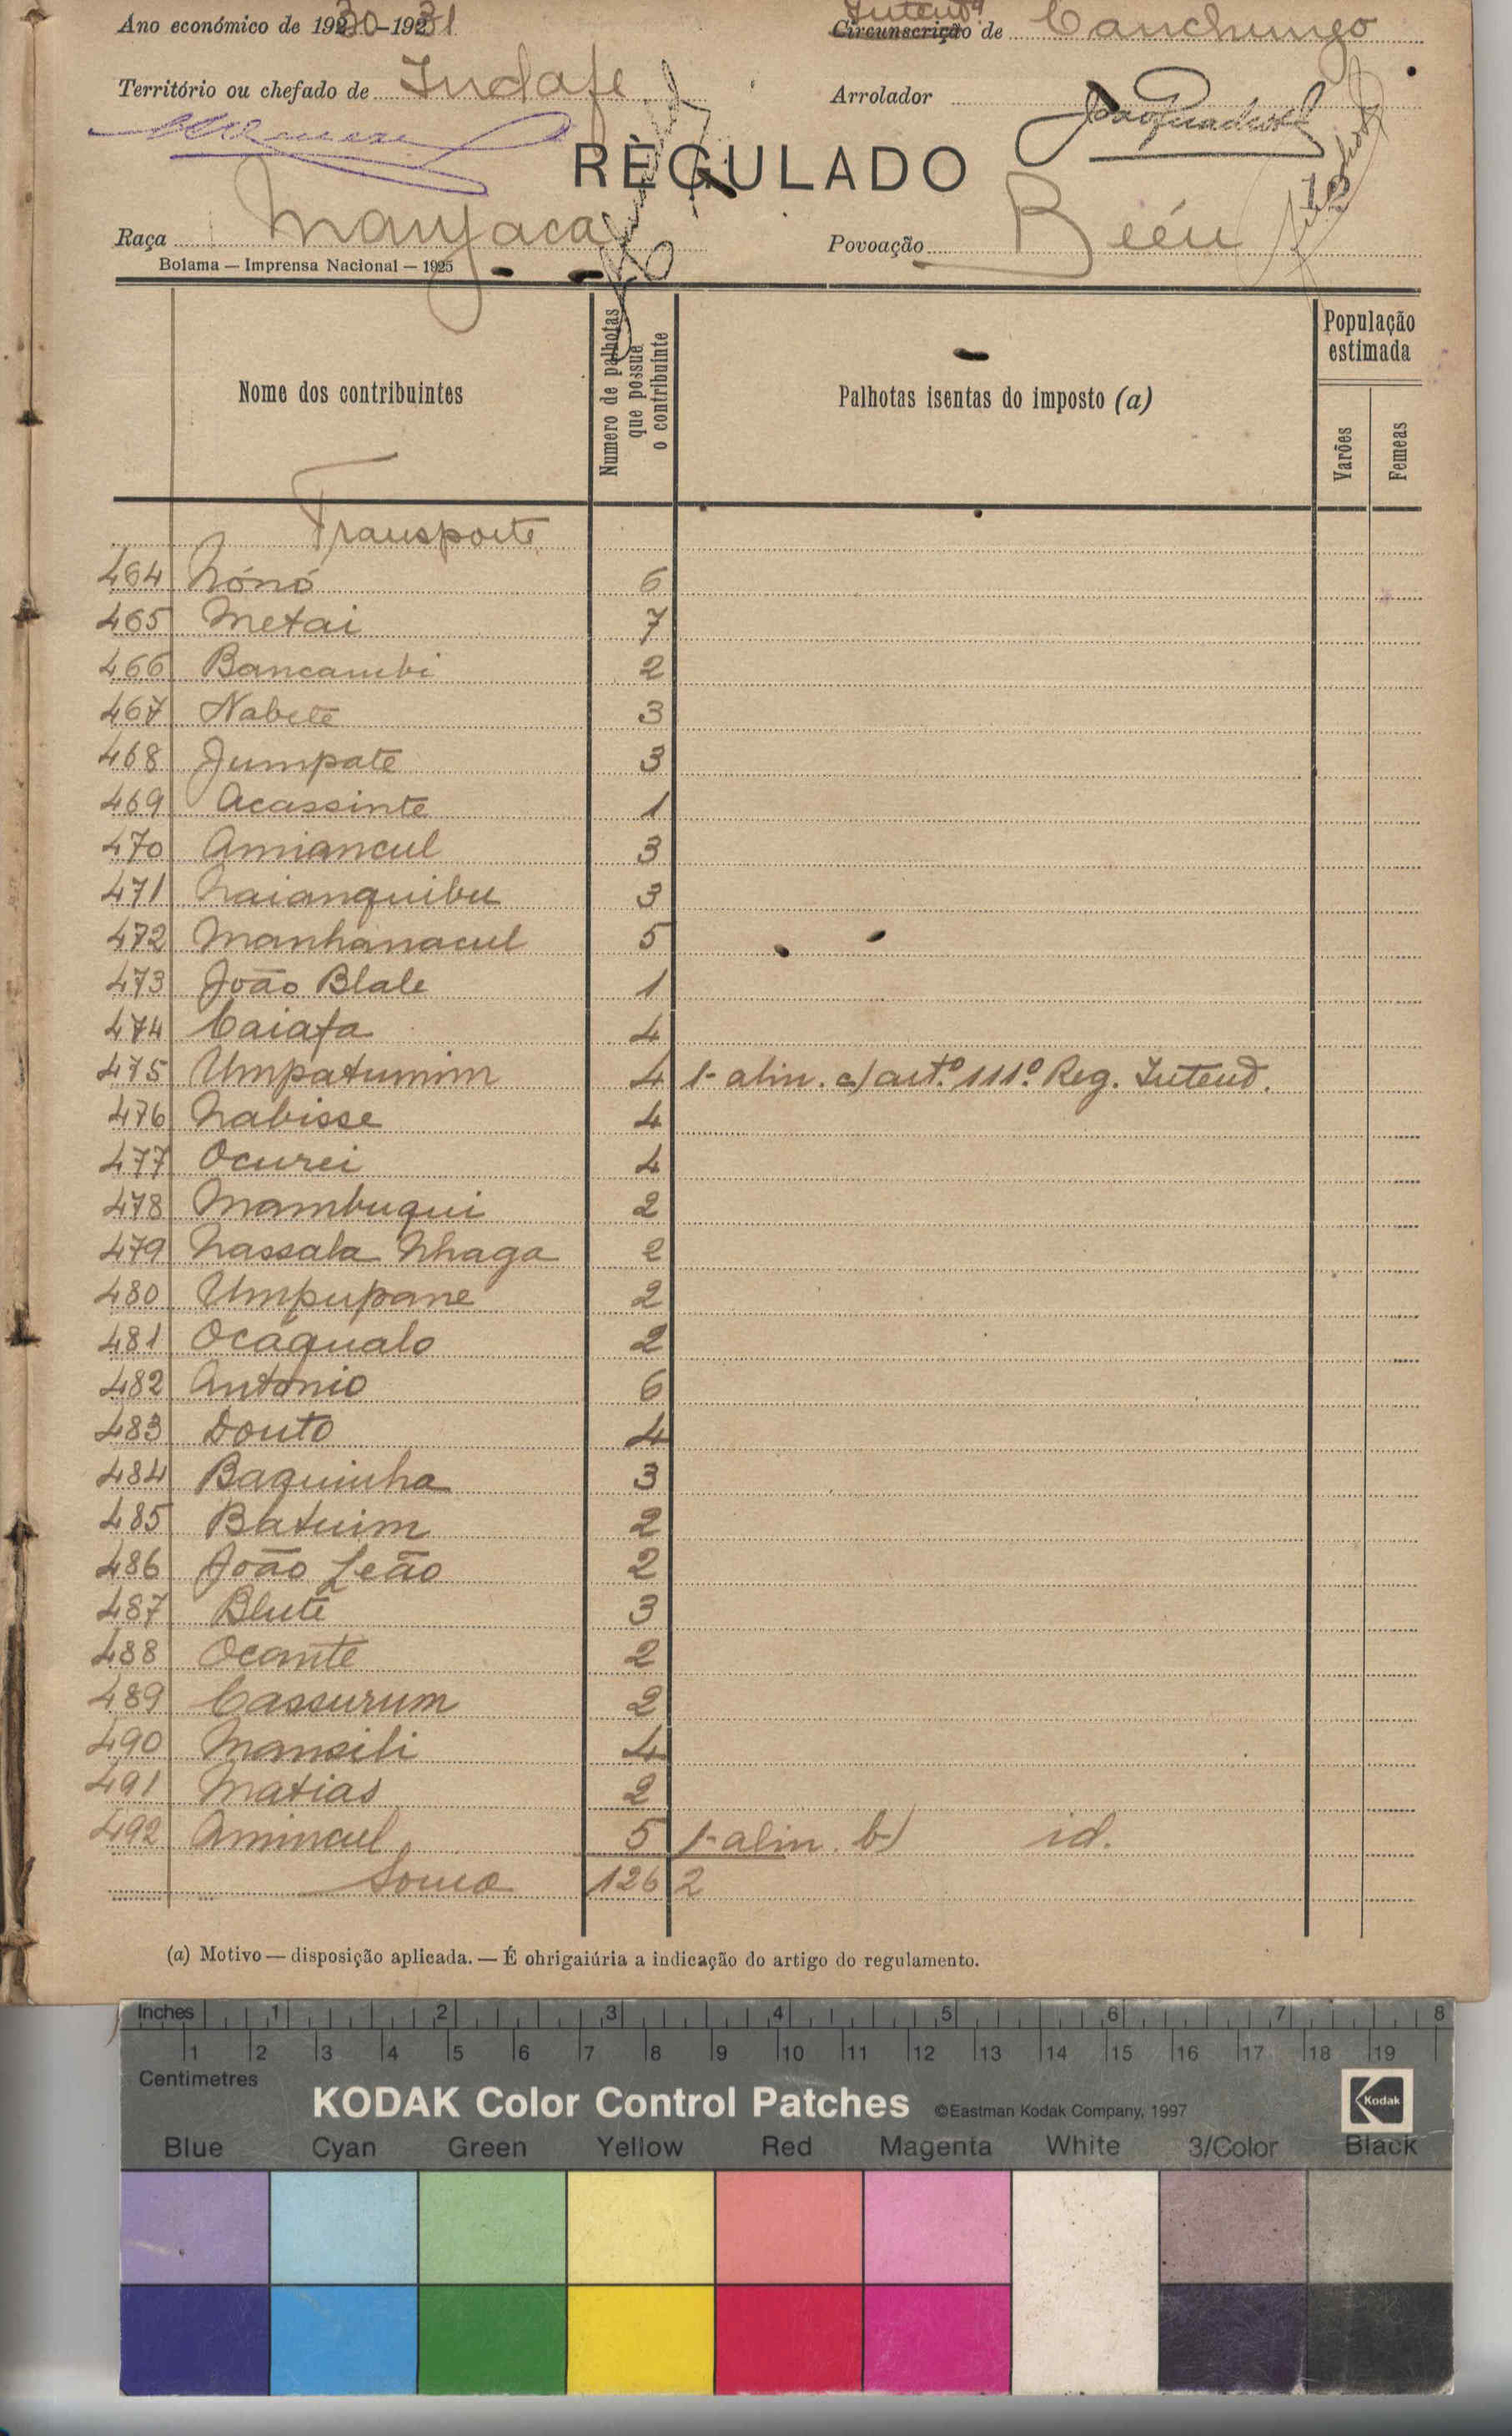 Ano económico de 1930-1931
Intend.ª
Circunscrição de Canchungo
Território ou chefado de Indafe
Arrolador
RÈGULADO
Raça Manjaca
Povoação Beéu
Bolama — Imprensa Nacional — 1925
Nome dos contribuintes
Numero de palhotas que possue o contribuinte
Palhotas isentas do imposto (a)
População estimada
Varões
Femeas
Transporte
464 Nónó 6
465 Metai 7
466 Bancambi 2
467 Nabete 3
468 Jumpate 3
469 Acassinte 1
470 Amiancul 3
471 Naianquibu 3
472 Manhanacul 5
473 João Blale 1
474 Caiafa 4
475 Umpatumim 4 1- alin. c) art.º 111º Reg. Intend.
476 Nabisse 4
477 Ocurei 4
478 Mambuqui 2
479 Nassala Nhaga 2
480 Umpupane 2
481 Ocáqualo 2
482 António 6
483 Douto 4
484 Baquinha 3
485 Batuim 2
486 João Leão 2
487 Blute 3
488 Ocante 2
489 Cassurum 2
490 Mansili 4
491 Matias 2
492 Amincul 5 1- alin. b) id.
Soma 126 2
(a) Motivo — disposição aplicada. — É obrigaiúria a indicação do artigo do regulamento.
Inches 1 2 3 4 5 6 7 8
1 2 3 4 5 6 7 8 9 10 11 12 13 14 15 16 17 18 19
Centimetres
KODAK Color Control Patches ©Eastman Kodak Company, 1997 Kodak
Blue Cyan Green Yellow Red Magenta White 3/Color Black